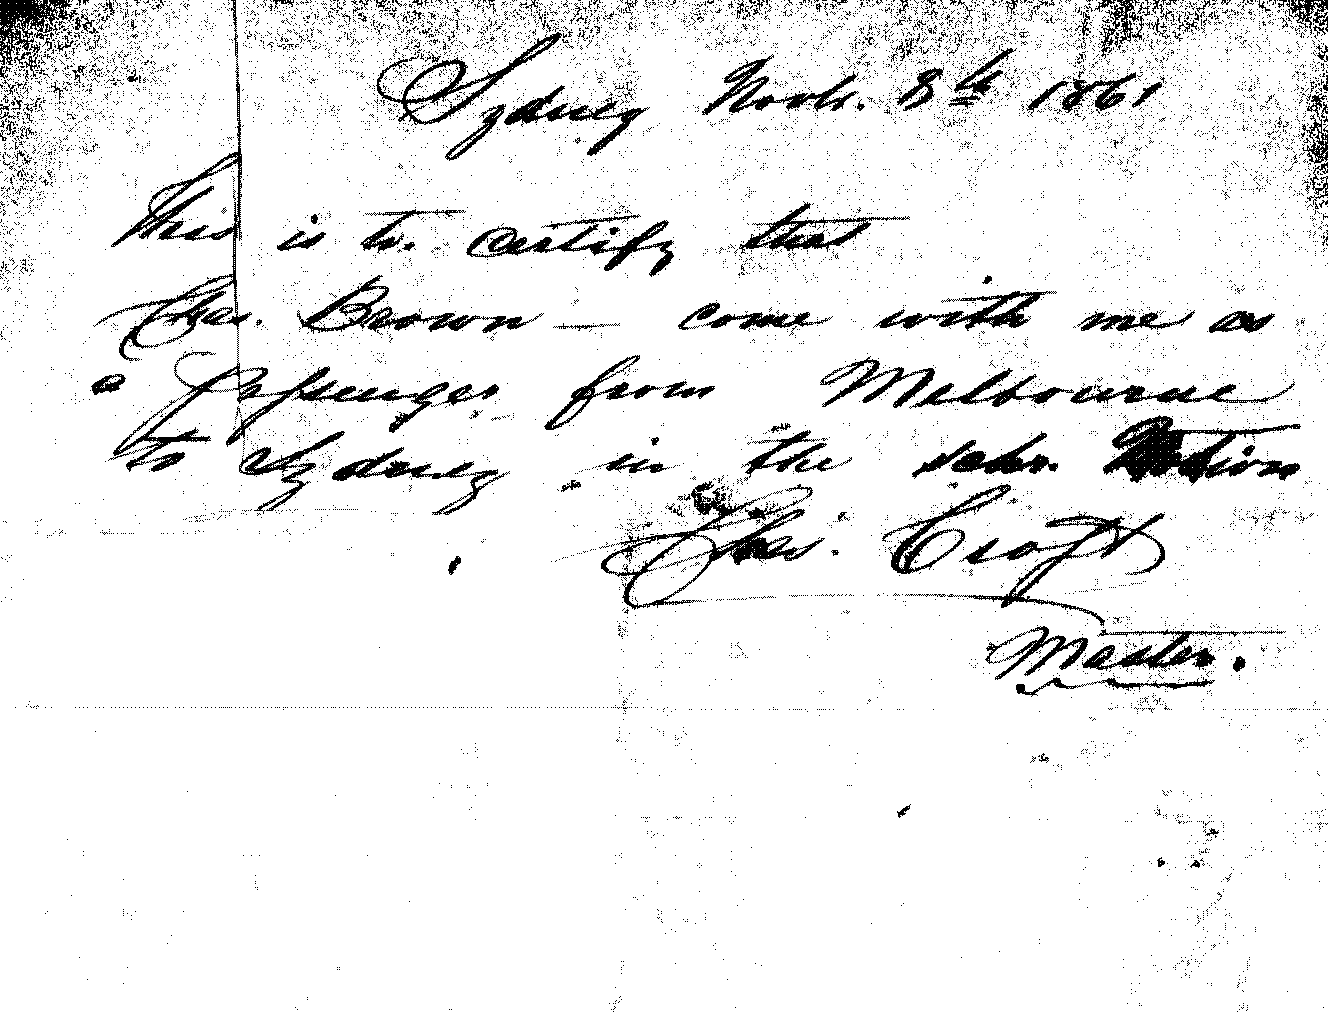 Sydney Novbr. 8th 1861
This is to certify that
Chas. Brown — come with me as
a passenger from Melbourne
to Sydney in the schr.
Chas. Croft
Master.